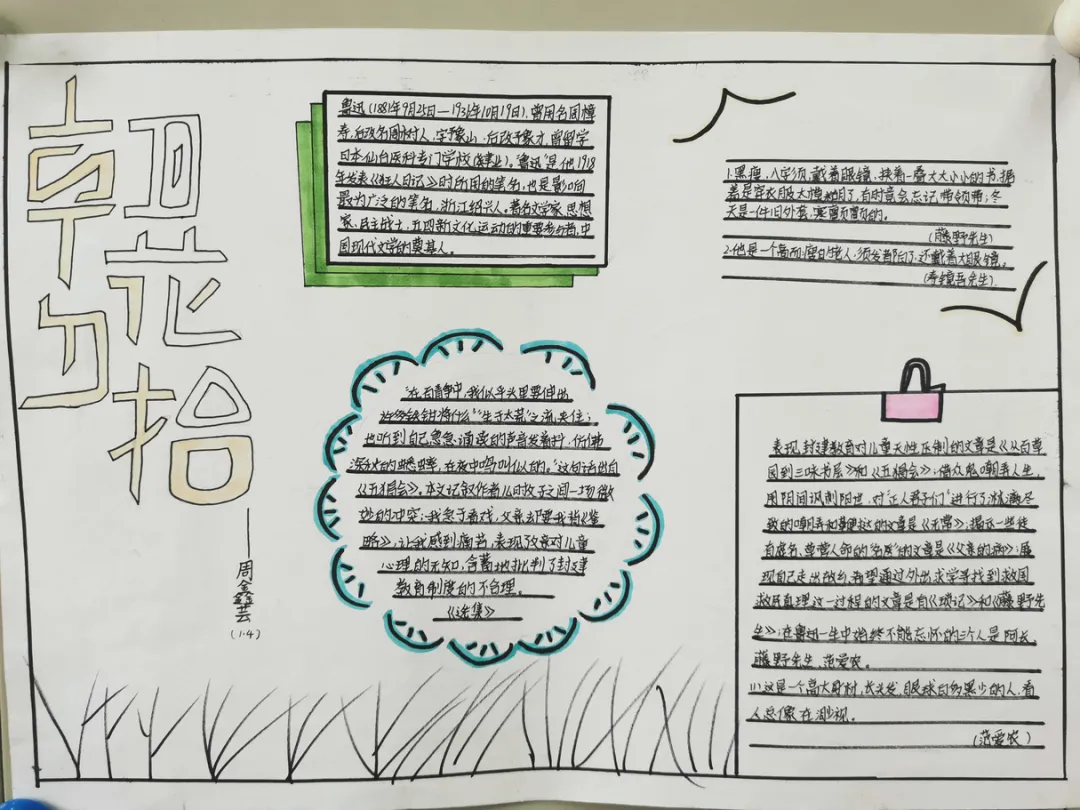 朝花夕拾
——周鑫芸
(1.4)
鲁迅(1881年9月25日—1936年10月19日),曾用名周樟
寿,后改名周树人,字豫山,后改字豫才,曾留学
日本仙台医科专门学校(肄业)。“鲁迅”是他1918
年发表《狂人日记》时所用的笔名,也是影响
最为广泛的笔名,浙江绍兴人。著名文学家、思想
家、民主战士,五四新文化运动的重要参与者,中
国现代文学的奠基人。
1.黑瘦,八字须,戴着眼镜,挟着一叠大大小小的书,据
着是穿衣服太模糊了,有时竟会忘记带领带;冬
天是一件旧外套,寒颤颤的。
(藤野先生)
2.他是一个高而瘦的老人,须发都白了,还戴着大眼镜。
(寿镜吾先生)
“在百静中,我似乎头里要伸出
许多铁钳,将什么“生于太荒”之流夹住;
也听到自己急急诵读的声音发着抖,仿佛
深秋的蟋蟀,在夜中鸣叫似的。”这句话出自
《五猖会》。本文记叙作者儿时父子之间一场微
妙的冲突:我急于看戏,父亲却要我背《鉴
略》,让我感到痛苦,表现了父亲对儿童
心理的无知,含蓄地批判了封建
教育制度的不合理。
表现封建教育对儿童天性压制的文章是《从百草
园到三味书屋》和《五猖会》;借众鬼嘲弄人生,
用阴间讽刺阳世,对“正人君子们”进行了淋漓尽
致的嘲弄和鞭挞的文章是《无常》;揭示一些徒
有虚名、草菅人命的“名医”的文章是《父亲的病》;展
现自己走出故乡,希望通过外出求学寻找到救国
救民真理这一过程的文章是自《琐记》和《藤野先
生》;在鲁迅一生中始终不能忘怀的三个人是阿长、
藤野先生、范爱农。
(1)这是一个高大身材,长头发,眼球白多黑少的人,看
人总像在渺视。
(范爱农)